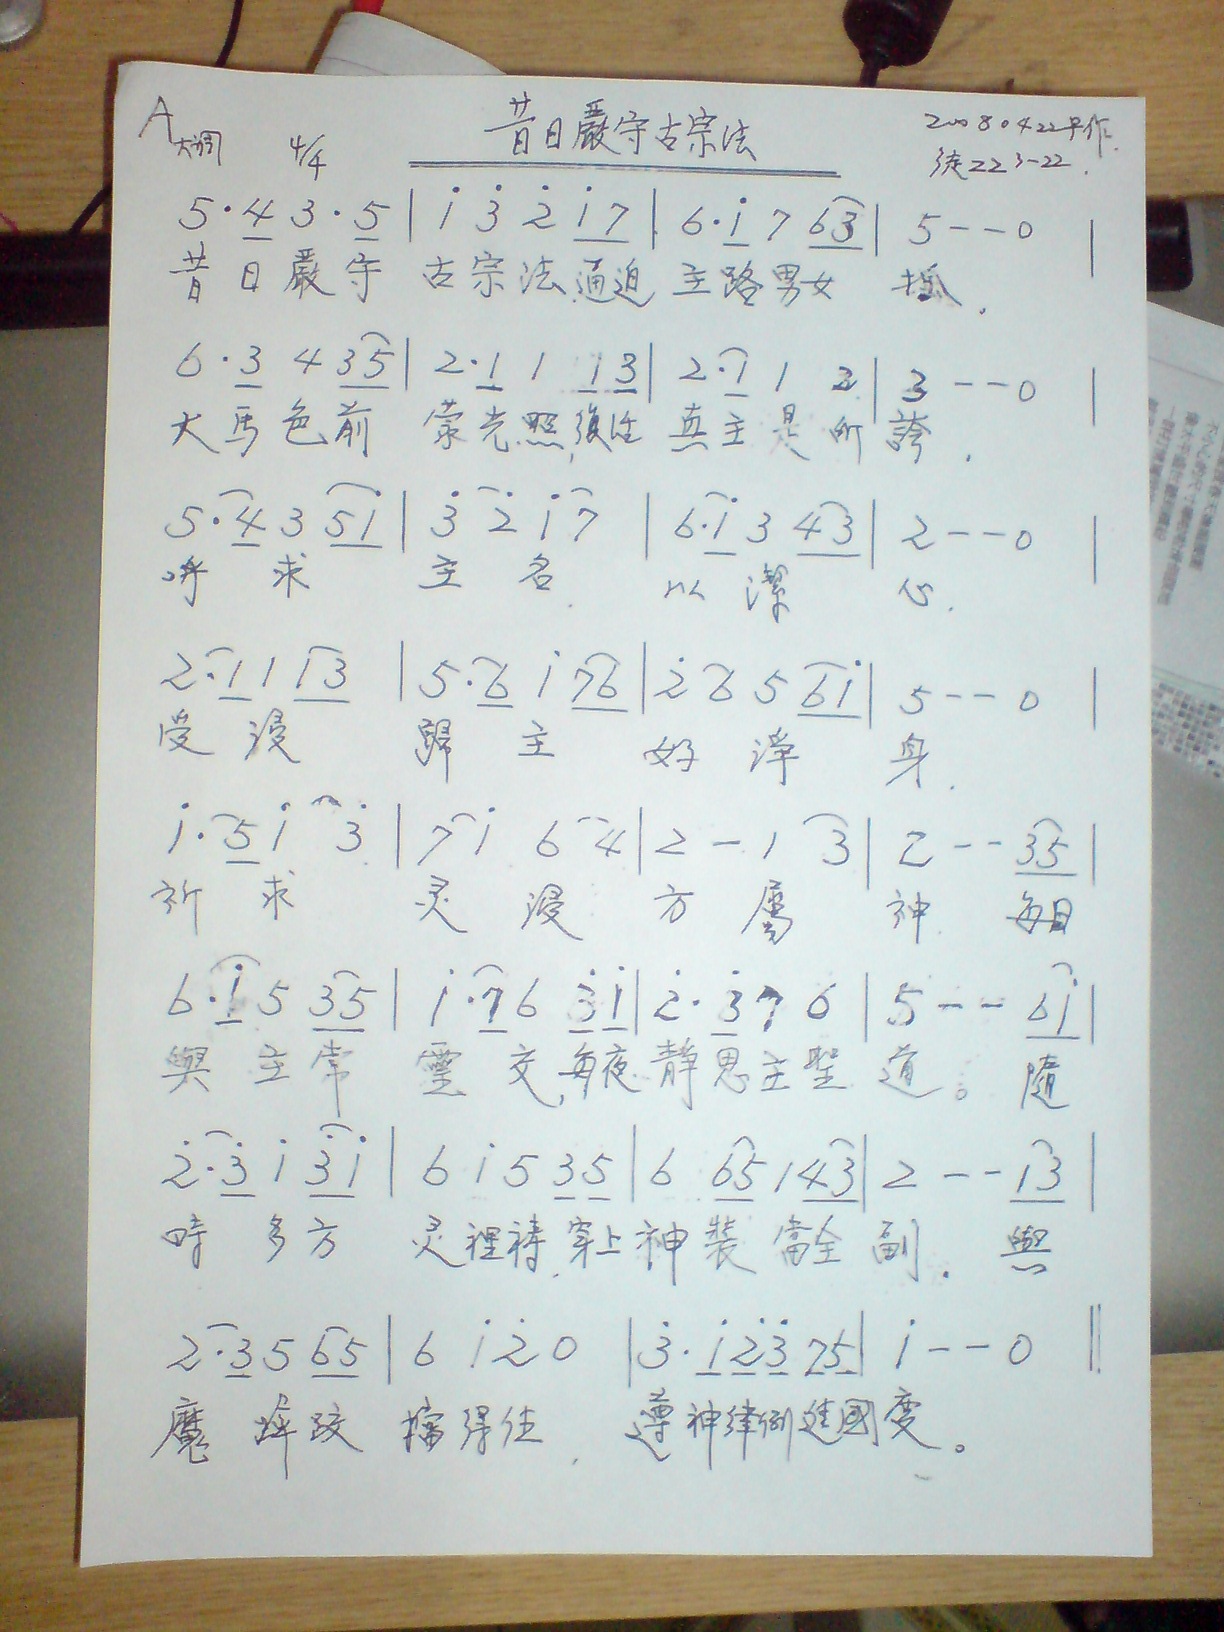 A大調 4/4 昔日嚴守古宗法 20080422早作
徒22 3-22
5·4 3·5 | i̇ 3̇ 2̇ i̇7 | 6·i̇ 7 63 | 5--0 |
昔日嚴守 古宗法,逼迫 主路男女 抓.
6·3 4 35 | 2·1 1 13 | 2·1 1 2 | 3--0 |
大馬色前 蒙光照,復活 真主是所誇.
5·4 3 5i̇ | 3̇ 2̇ i̇ 7 | 6·i̇ 3 43 | 2--0 |
呼求 主名 以潔 心.
2·1 1 13 | 5·6 i̇ 76 | 2̇ 6 5 6i̇ | 5--0 |
受浸 歸主 好淨 身.
i̇·5 i̇ 3̇ | 7 i̇ 6 4 | 2 - 1 3 | 2--35 |
祈求 灵浸 方屬 神 每日
6·i̇ 5 35 | i̇·7 6 3̇i̇ | 2̇·3̇ 7 6 | 5--6i̇ |
與主常 靈交,每夜 静思主聖 道。隨
2̇·3̇ i̇ 3̇i̇ | 6 i̇ 5 35 | 6 65 1 43 | 2--13 |
時多方 灵裡祷,穿上 神裝當全 副. 與
2·3 5 65 | 6 i̇ 2̇ 0 | 3̇·i̇2̇3̇ 75 | i̇--0 ||
魔摔跤 擋得住, 遵神律例進國度。